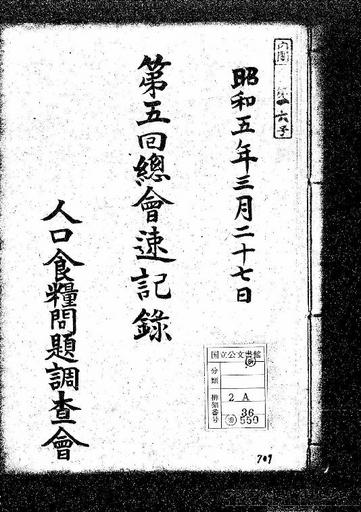 昭和五年三月二十七日
第五回總會速記錄
人口食糧問題調査會
国立公文書館
分類
排架番号
2 A
36
550
709